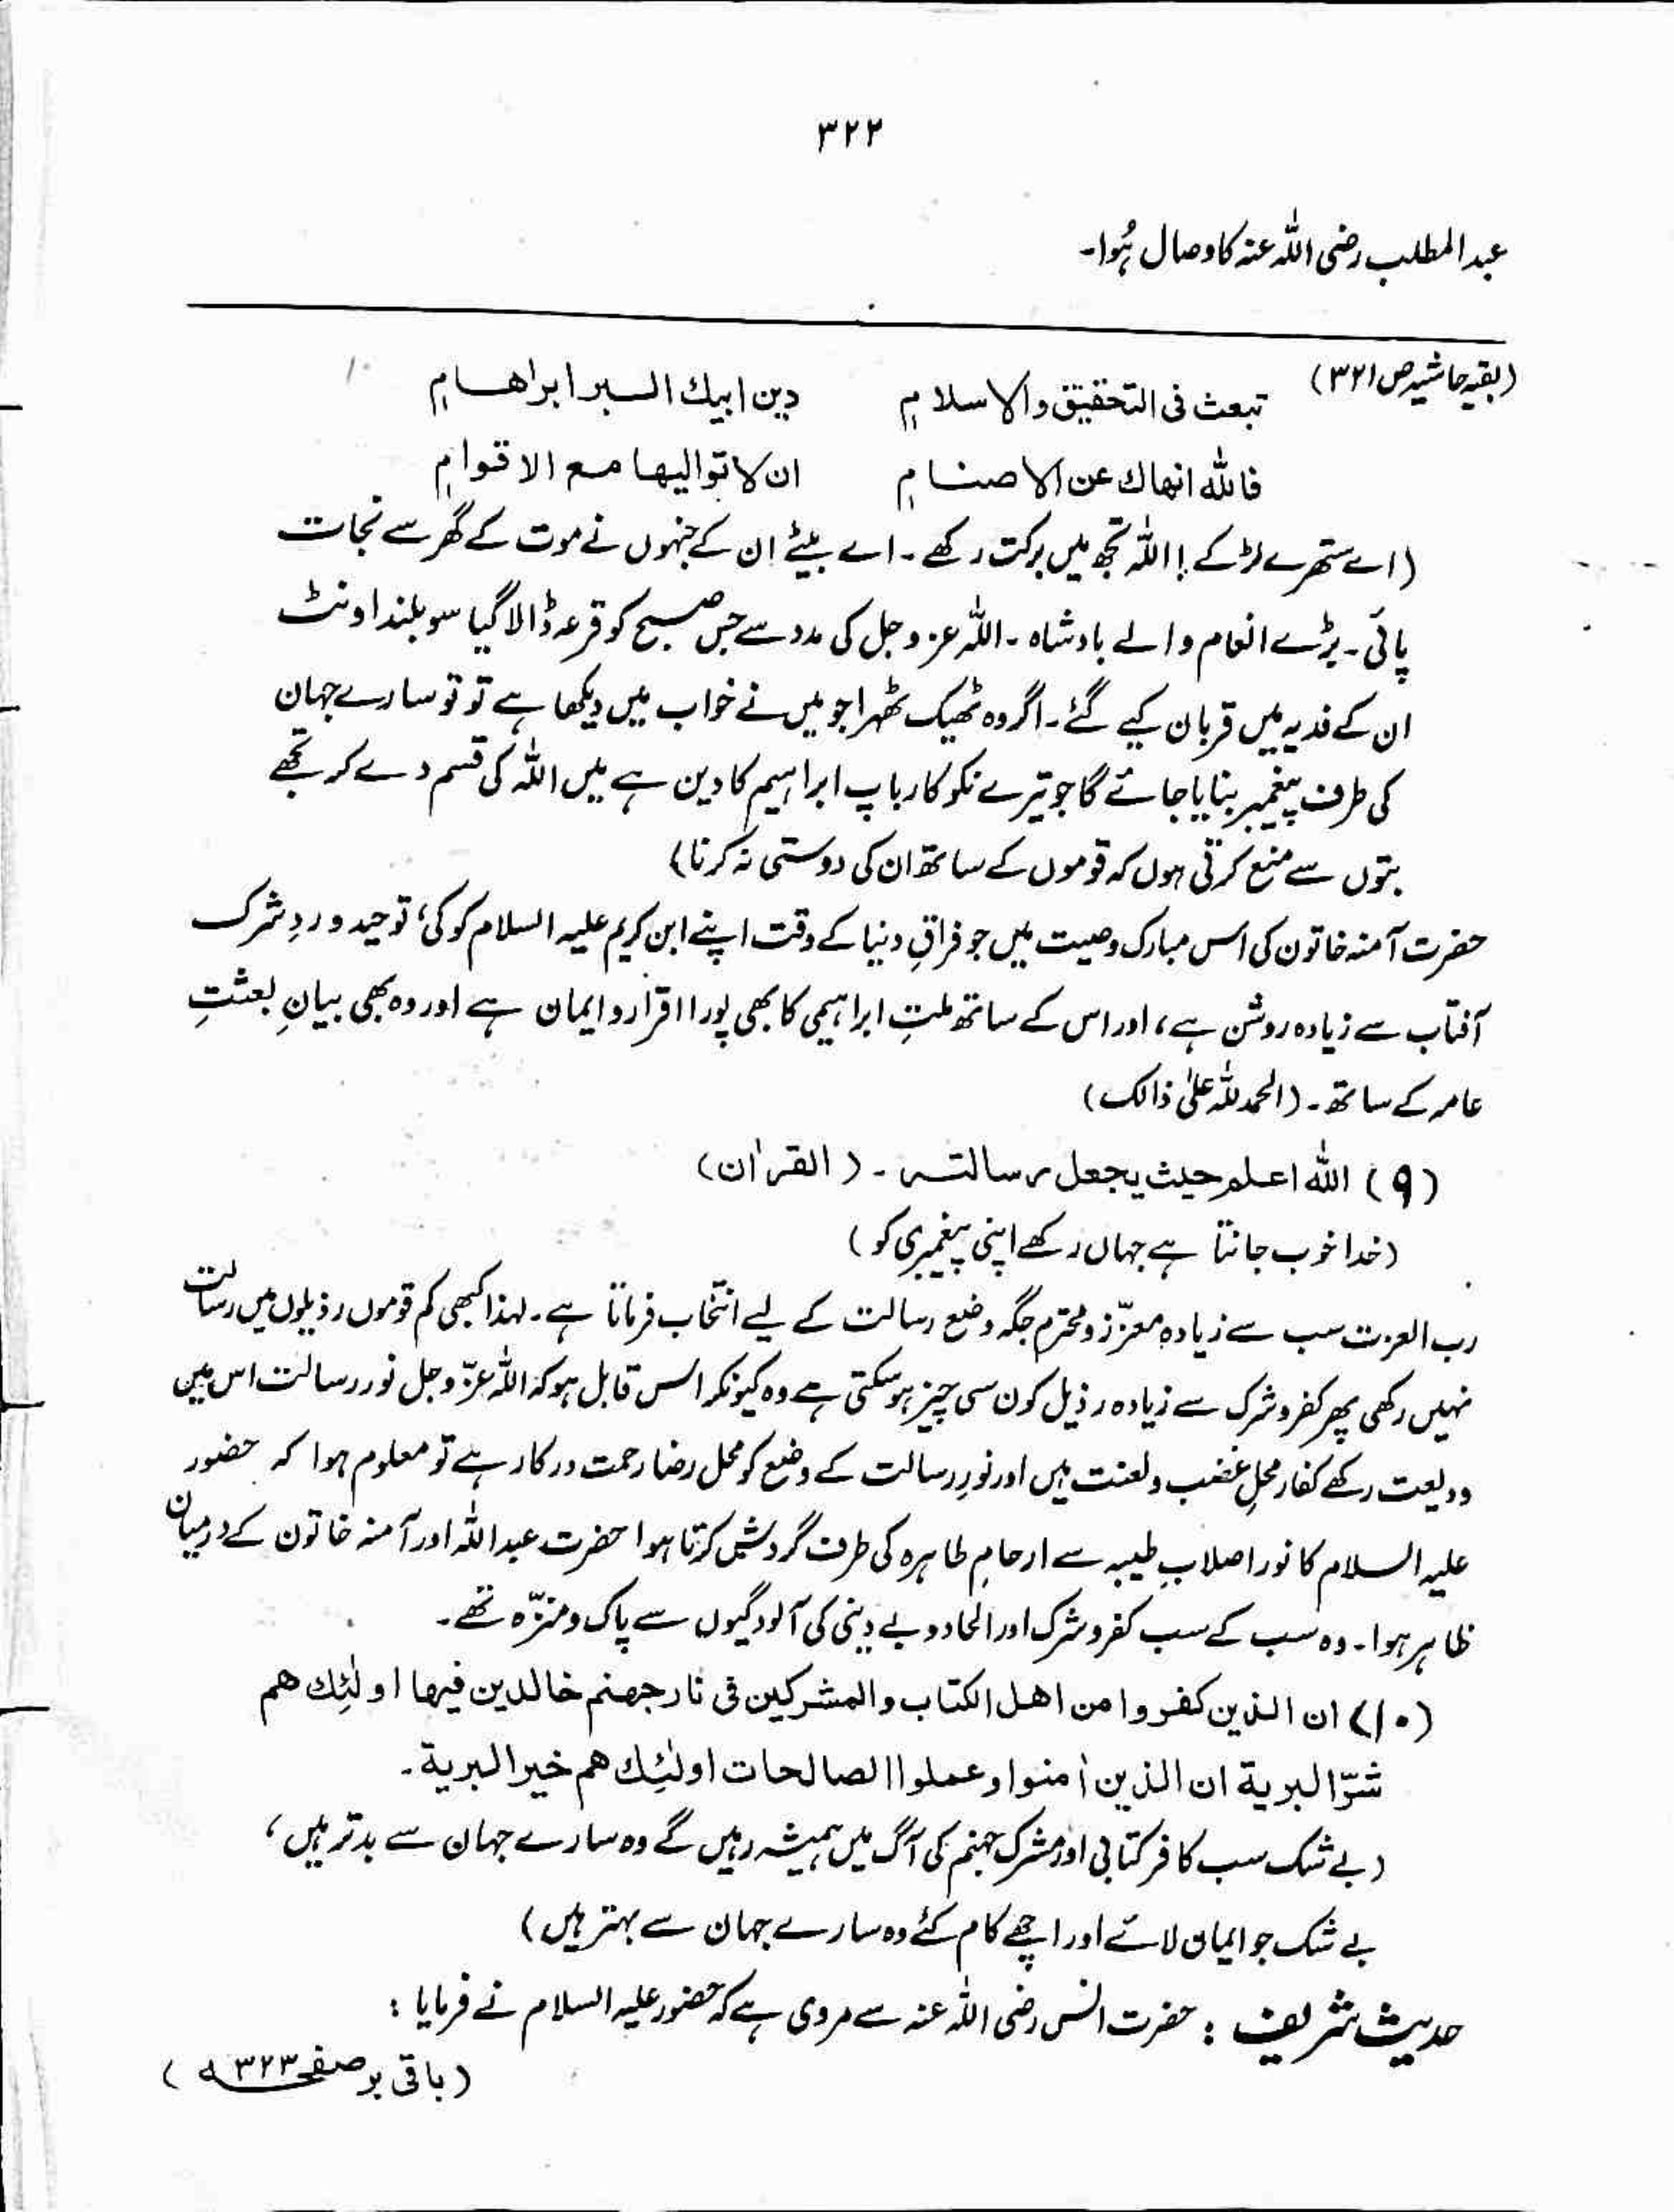 ۳۲۲
عبدالمطلب رضی اللہ عنہ کا وصال ہُوا۔
(بقیہ حاشیہ ص ۳۲۱)
تبعث فی التحقیق والاسلامِ دین ابیك السبر ابراھامِ
فاللّٰه انهاك عن الاصنامِ ان لا توالیها مع الاقوامِ
(اے ستھرے لڑکے! اللہ تجھ میں برکت رکھے۔ اے بیٹے ان کے جنہوں نے موت کے گھر سے نجات
پائی۔ بڑے انعام والے بادشاہ۔ اللہ عزوجل کی مدد سے جس صبح کو قرعہ ڈالا گیا سو بلند اونٹ
ان کے فدیہ میں قربان کیے گئے۔ اگر وہ ٹھیک ٹھہرا جو میں نے خواب میں دیکھا ہے تو تو سارے جہان
کی طرف پیغمبر بنایا جائے گا جو تیرے نکوکار باپ ابراہیم کا دین ہے میں اللہ کی قسم دے کر تجھے
بتوں سے منع کرتی ہوں کہ قوموں کے ساتھ ان کی دوستی نہ کرنا)
حضرت آمنہ خاتون کی اس مبارک وصیت میں جو فراقِ دنیا کے وقت اپنے ابن کریم علیہ السلام کو کی، توحید و ردِ شرک
آفتاب سے زیادہ روشن ہے، اور اس کے ساتھ ملتِ ابراہیمی کا بھی پورا اقرار و ایمان ہے اور وہ بھی بیانِ بعثتِ
عامہ کے ساتھ۔ (الحمد للہ علیٰ ذالک)
(۹) اللّٰه اعلم حیث یجعل رسالته۔ (القراٰن)
(خدا خوب جانتا ہے جہاں رکھے اپنی پیغمبری کو)
رب العزت سب سے زیادہ معزّز و محترم جگہ وضع رسالت کے لیے انتخاب فرماتا ہے۔ لہذا کبھی کم قوموں رذیلوں میں رسالت
نہیں رکھی پھر کفر و شرک سے زیادہ رذیل کون سی چیز ہو سکتی ہے وہ کیونکر اس قابل ہو کہ اللہ عزّوجل نور رسالت اس میں
ودیعت رکھے کفار محلِ غضب و لعنت ہیں اور نورِ رسالت کے وضع کو محل رضا رحمت درکار ہے تو معلوم ہوا کہ حضور
علیہ السلام کا نور اصلابِ طیبہ سے ارحامِ طاہرہ کی طرف گردش کرتا ہوا حضرت عبداللہ اور آمنہ خاتون کے درمیان
ظاہر ہوا۔ وہ سب کے سب کفر و شرک اور الحاد و بے دینی کی آلودگیوں سے پاک و منزّہ تھے۔
(۱۰) ان الذین کفروا من اهل الکتاب والمشرکین فی نار جهنم خالدین فیها اولٰئِك هم
شرّ البریة ان الذین اٰمنوا وعملوا الصالحات اولٰئِك هم خیر البریة۔
(بے شک سب کافر کتابی اور مشرک جہنم کی آگ میں ہمیشہ رہیں گے وہ سارے جہان سے بدتر ہیں،
بے شک جو ایمان لائے اور اچھے کام کئے وہ سارے جہان سے بہتر ہیں)
حدیث شریف : حضرت انس رضی اللہ عنہ سے مروی ہے کہ حضور علیہ السلام نے فرمایا :
(باقی بر صفحہ ۳۲۳)